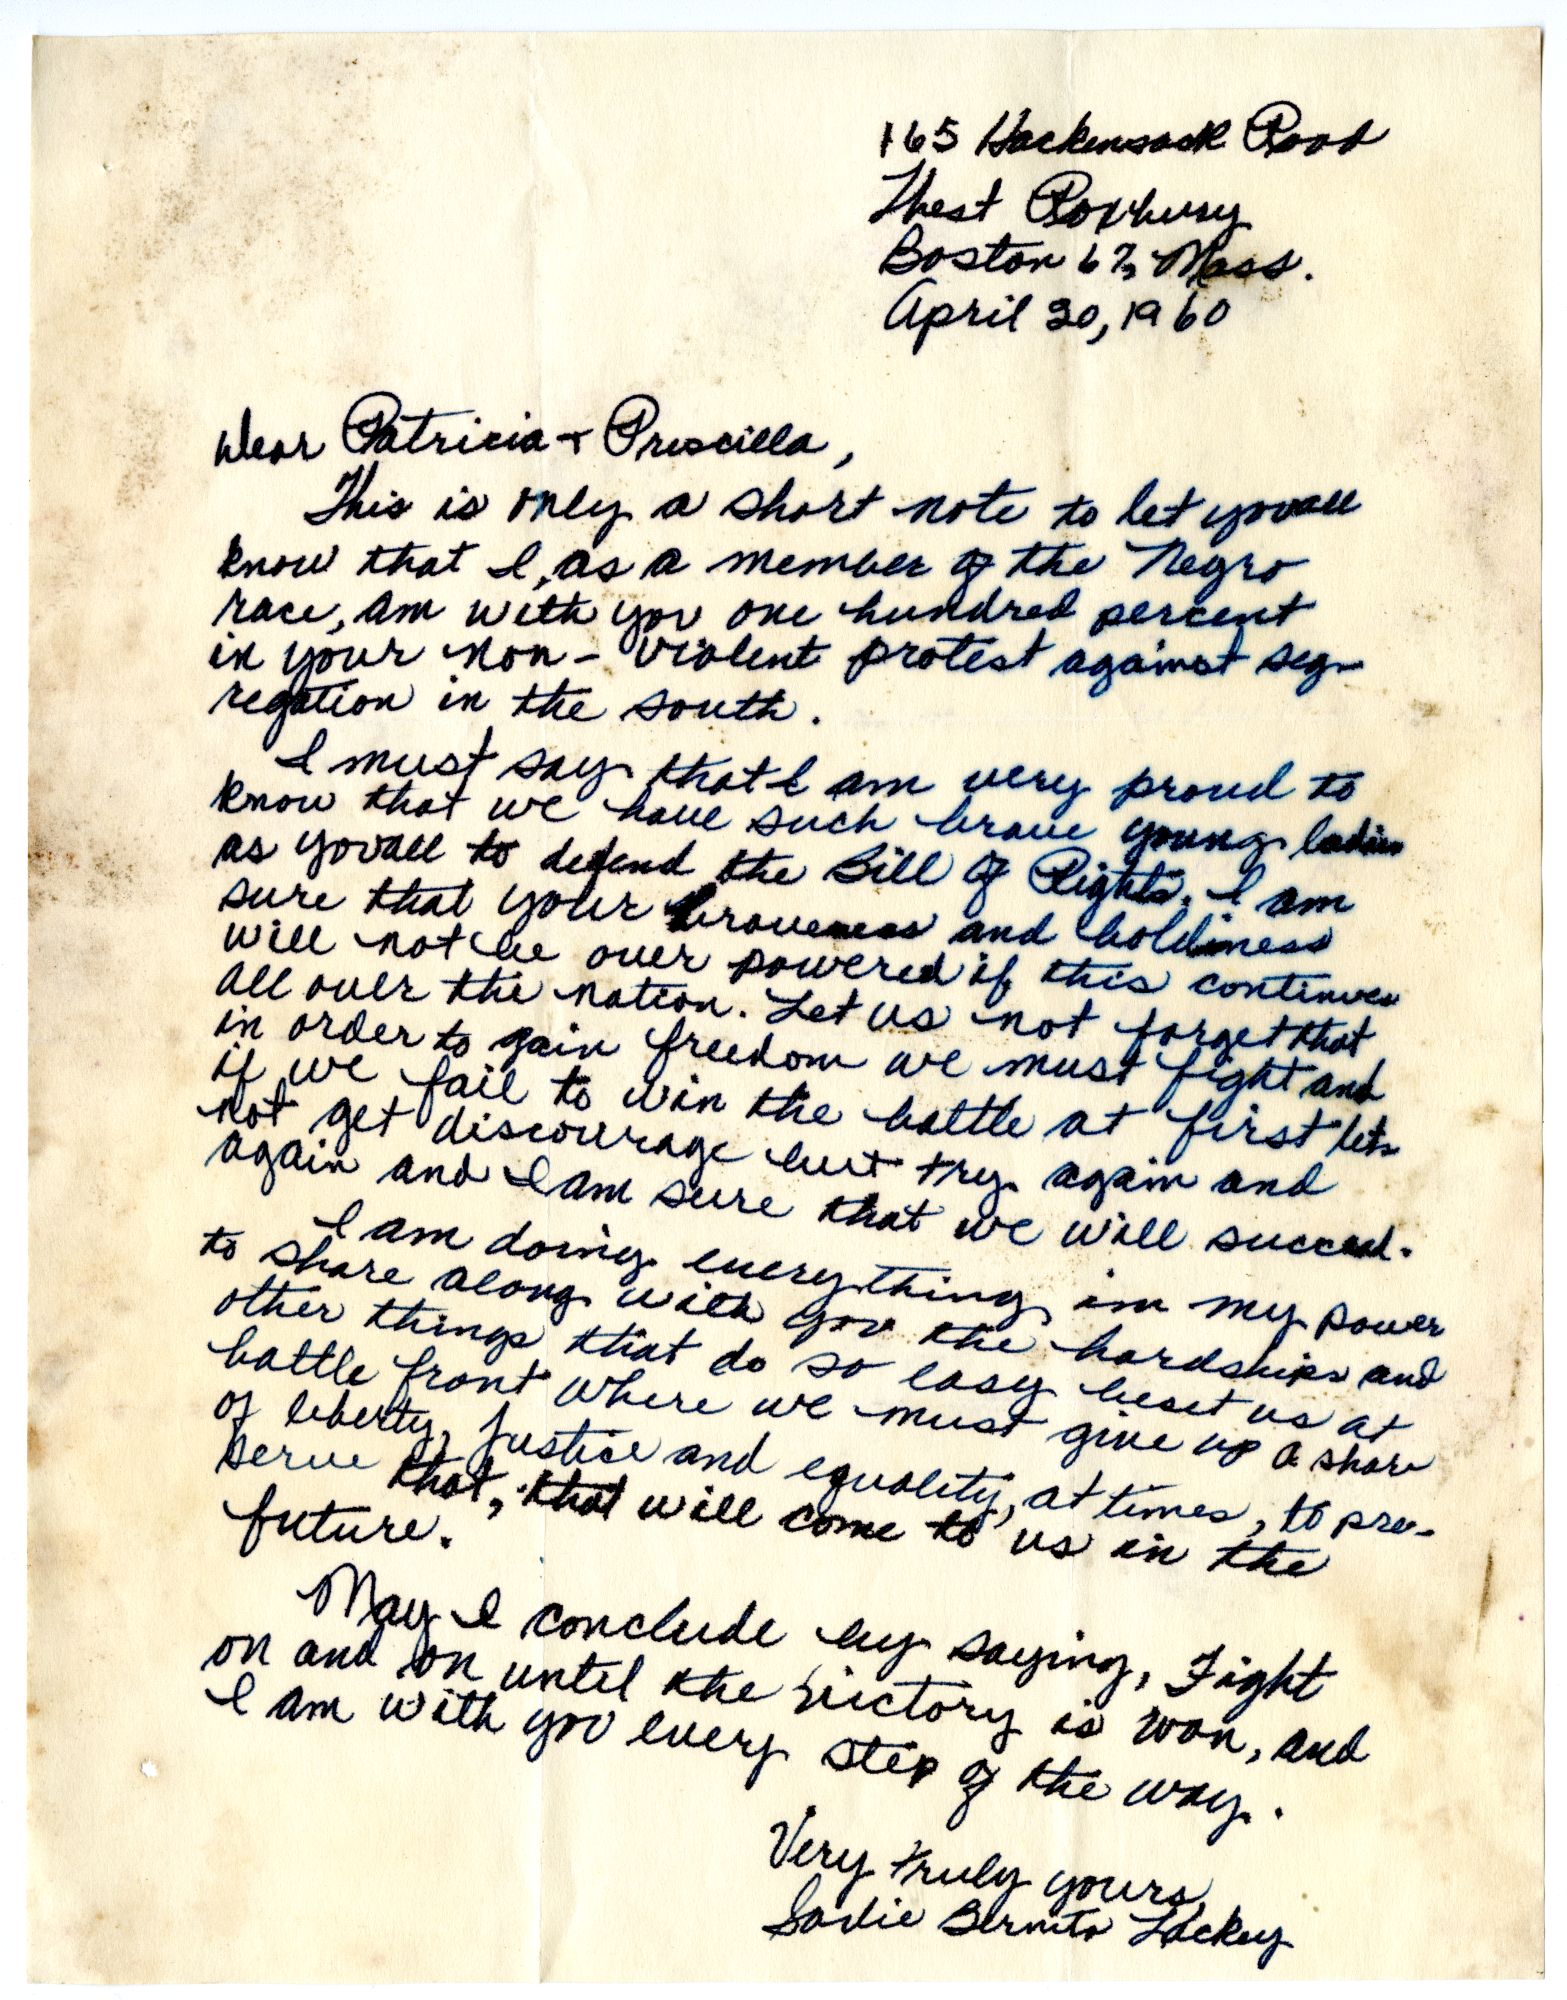 165 Hackensack Road
West Roxbury
Boston 67, Mass.
April 20, 1960
Dear Patricia + Priscilla,
This is only a short note to let youall
know that I, as a member of the Negro
race, am with you one hundred percent
in your non-violent protest against seg-
regation in the south.
I must say that I am very proud to
know that we have such brave young ladies
as youall to defend the Bill of Rights. I am
sure that your braveness and boldness
will not be over powered if this continues
all over the nation. Let us not forget that
in order to gain freedom we must fight and
if we fail to win the battle at first lets
not get discourage but try again and
again and I am sure that we will succeed.
I am doing everything in my power
to share along with you the hardships and
other things that do so easy beset us at
battle front where we must give up a share
of liberty, justice and equality, at times, to pre-
serve that, that will come to us in the
future.
May I conclude by saying, Fight
on and on until the victory is won, and
I am with you every step of the way.
Very truly yours,
Sadie Bernita Lackey